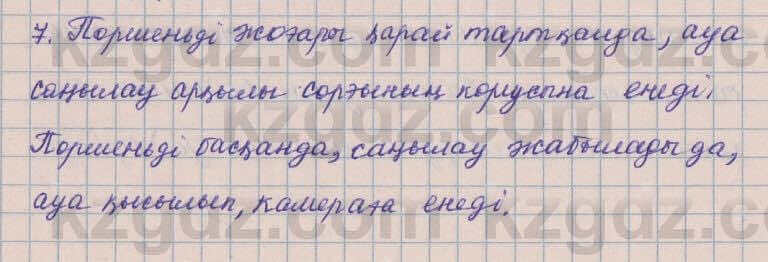 7. Поршеньді жоғары қарай тартқанда, ауа
саңылау арқылы сорғының корпусына енеді.
Поршеньді басқанда, саңылау жабылады да,
ауа қысылып, камераға енеді.
kzgdz.com